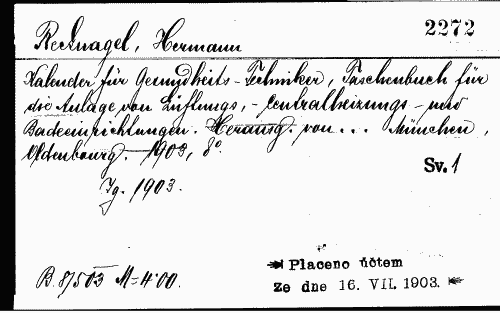 2272
Recknagel, Hermann
Kalender für Gesundheits-Techniker, Taschenbuch für
die Anlage von Lüftungs,- Centralheizungs- und
Badeeinrichtungen. Herausg. von... München,
Oldenbourg. 1903, 8°.
Sv. 1
Jg. 1903.
B. 8/503 M=4.00.
Placeno účtem
ze dne 16. VII. 1903.